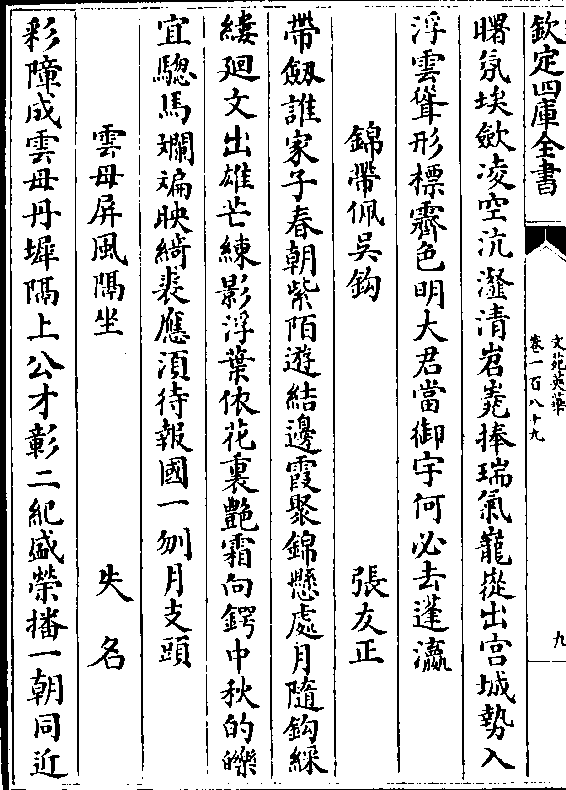 欽定四庫全書
文苑英華
卷一百八十九
九
曙氛埃斂凌空沆瀣清岧嶤捧瑞氣巃嵸出宫城勢入
浮雲聳形標霽色明大君當御宇何必去蓬瀛
錦帶佩吴鈎 張友正
帶劔誰家子春朝紫陌遊結邊霞聚錦懸處月隨鈎綵
縷廻文出雄芒練影浮葉依花裏艶霜向鍔中秋的皪
宜驄馬斕斒映綺裘應須待報國一刎月支頭
雲母屏風隔坐 失名
彩障成雲母丹墀隔上公才彰二紀盛榮播一朝同近